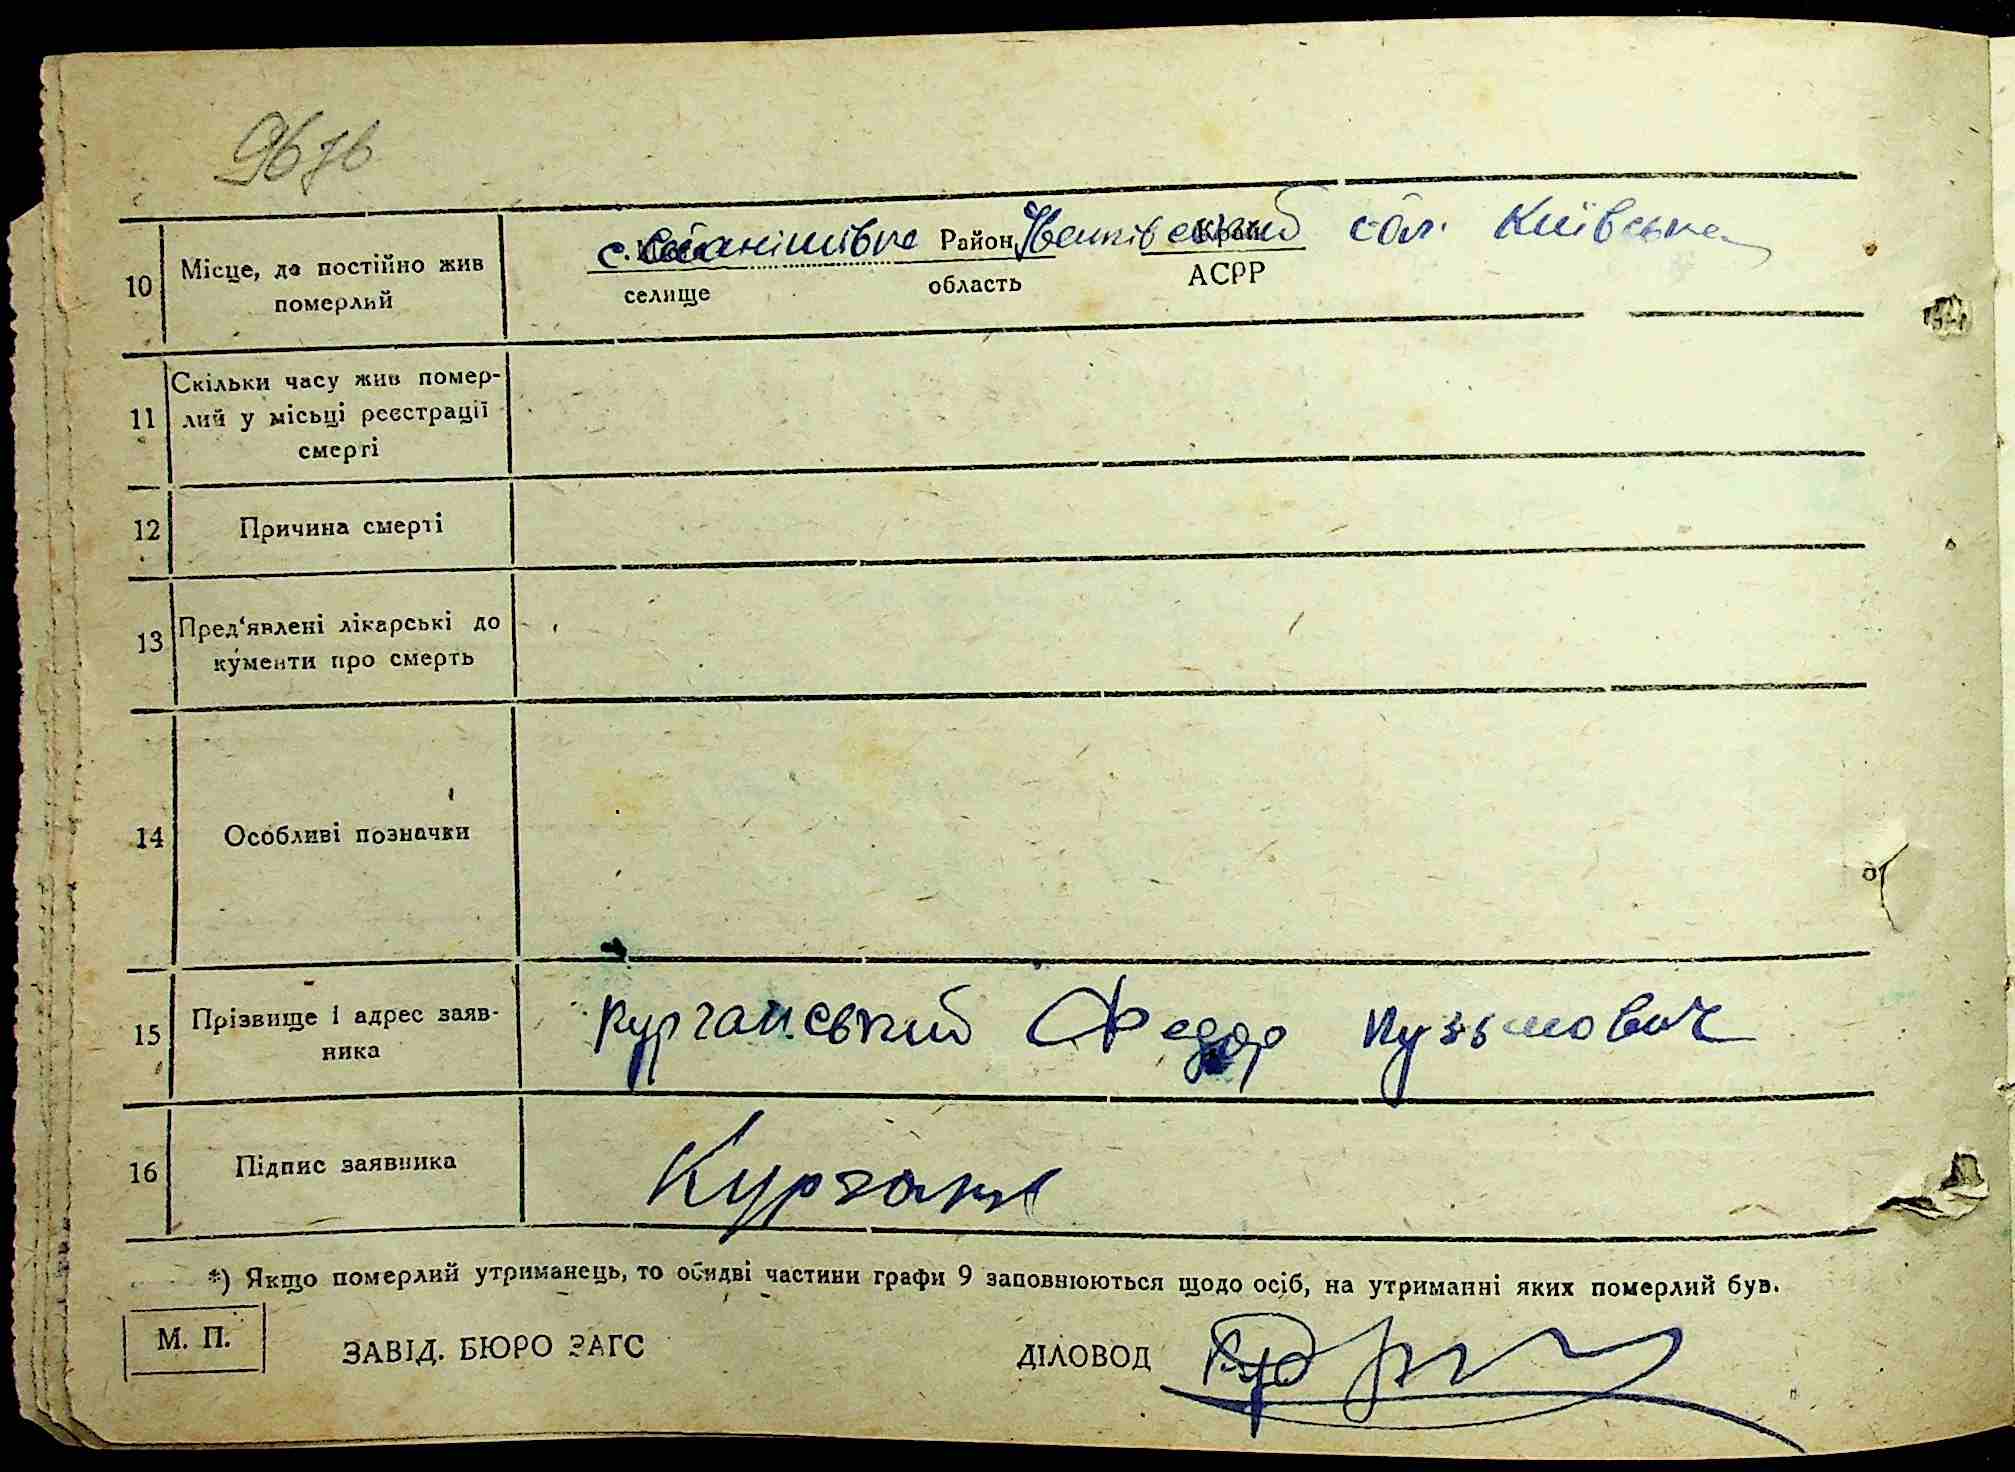 967б
10 Місце, де постійно жив
померлий
с. Станішівка Район Іванківський обл. Київська
селище область АСРР
11 Скільки часу жив помер-
лий у місьці реєстрації
смерті
12 Причина смерті
13 Пред'явлені лікарські до
кументи про смерть
14 Особливі позначки
15 Прізвище і адрес заяв-
ника
Курганський Федор Кузьмович
16 Підпис заявника
Курганс
*) Якщо померлий утриманець, то обидві частини графи 9 заповнюються щодо осіб, на утриманні яких померлий був.
М. П. ЗАВІД. БЮРО ЗАГС ДІЛОВОД